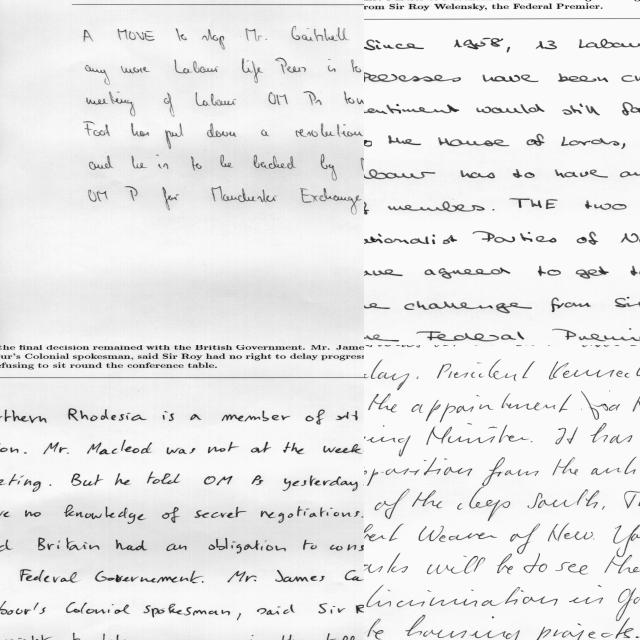 A MOVE to stop Mr. Gaitskell
any more Labour life Peers is to
meeting of Labour OM Ps
Foot has put down a resolution
and he is to be backed by
OM P for Manchester Exchange
rom Sir Roy Welensky, the Federal Premier.
Since 1958, 13 Labour
Peeresses have been
entiment would still
o the House of Lords,
abour has to have
members. THE two
ationalist Parties of
ave agreed to get
e challenge from Sir
he Federal Premi
the final decision remained with the British Government. Mr. Jame
our's Colonial spokesman, said Sir Roy had no right to delay progress
efusing to sit round the conference table.
rthern Rhodesia is a member of
on. Mr. Macleod was not at the week
eting. But he told OM Ps yesterday
ve no knowledge of secret negotiations.
d Britain had an obligation to cons
Federal Governement. Mr. James Ca
bour's Colonial spokesman, said Sir R
day. President Kenned
the appointment
ing Minister. It has
position from the
of the deep South.
ert Weaver of New Yo
asks will be to see the
discrimination in Go
te housing projects